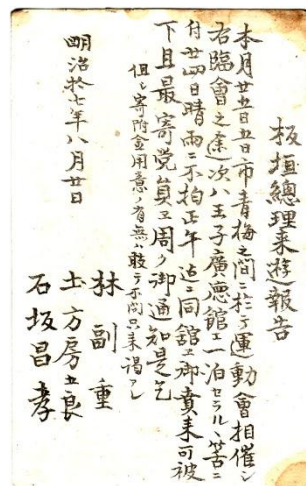 板垣總理来遊報告
本月廿五日五日市青梅之間ニ於テ運動會相催シ
右臨會之途次八王子廣徳館ニ一泊セラルヽ筈ニ
付廿四日晴雨ニ不拘正午迄ニ同舘エ御賁来可被
下且最寄党員エ周ク御通知是乞
但シ寄附金用意ノ有無ハ敢テ不問只来謁アレ
明治拾七年八月廿日
林副重
土方房五良
石坂昌孝